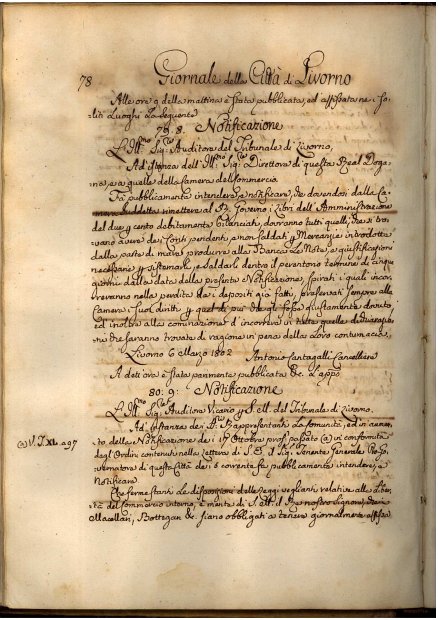 78 Giornale della Città di Livorno
Alle ore 9 della mattina è stata pubblicata, ed affissata ne i so-
liti Luoghi la seguente
79. 8. Notificazione
L'Ill.mo Sig.re Auditore del Tribunale di Livorno,
Ad istanza dell'Ill.mo Sig.re Direttore di questa Real Doga-
na e a quelle della Camera del Commercio.
Fà pubblicamente intendere, e notificare, che dovendosi dalla Ca-
mera suddetta rimettere al R. Governo i Libri dell'Amministrazione
del due p cento debitamente bilanciati, dovranno tutti quelli, che si trov-
vano avere dei Conti pendenti, e non saldati p Mercanzie introdotte
dalla parte di mare produrre alla Banca le Note, e giustificazioni
necessarie p sistemarli, e saldarli dentro il perentorio termine di cinque
giorni dalla data della presente Notificazione, spirati i quali incor-
reranno nella perdita dei depositi già fatti, preservati sempre alla
Camera i suoi diritti p quel di più che gli fosse giustamente dovuto
ed inoltre alla comminazione d'incorrere in tutte quelle
che saranno trovate di ragione in pena della loro contumacia.
Livorno 6 Marzo 1802 Antonio Cantagalli Cancelliere
A dett'ore è stata parimente pubblicata &c. L'appò
80. 9. Notificazione
L'Ill.mo Sig.re Auditore Vicario p S. M. del Tribunale di Livorno.
Ad istanza dei SS.ri Rappresentanti la Comunità, ed in aumen-
to della Notificazione dei 17 Ottobre pross. passato (a) in conformità
(a) V. T. XL. a 97
degl'Ordini contenuti nella Lettera di S. E. il Sig. Tenente Generale Go-
vernatore di questa Città dei 6 corrente fà pubblicamente intendere, e
Notificare
Che ferme stanti le disposizioni delle Leggi veglianti relative alla liber-
tà del Commercio interno, è mente di S. M. il Re nostro Signore, che i
Macellari, Bottegari &c. siano obbligati a tenere giornalmente affissa